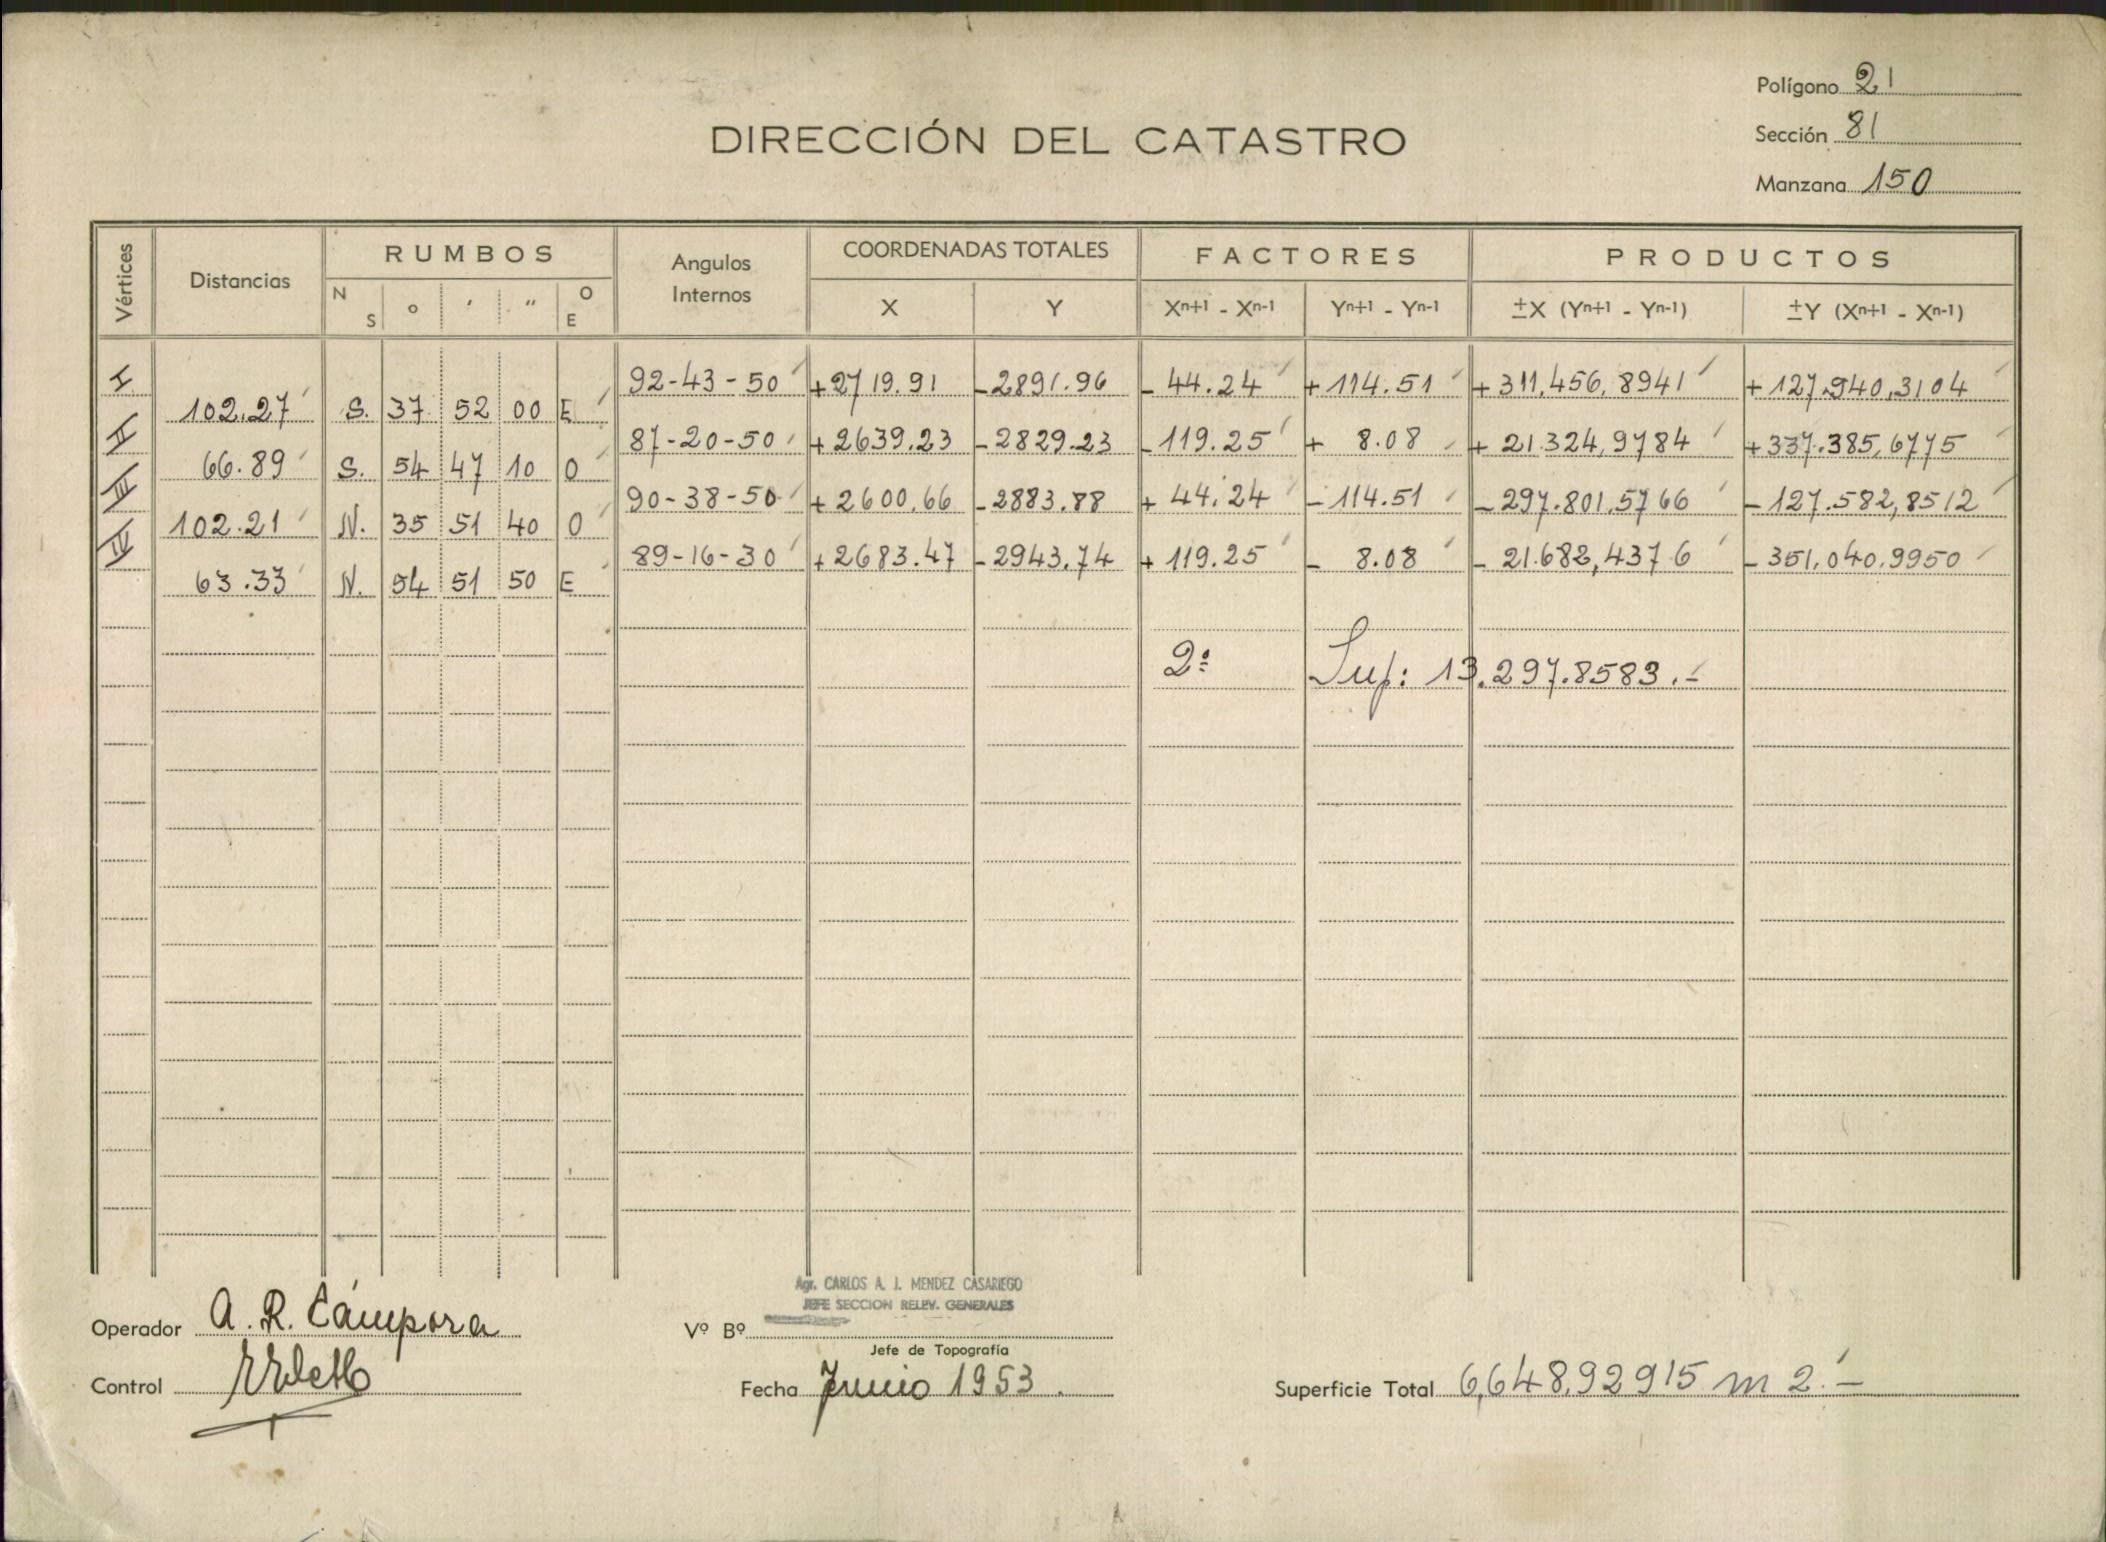 Polígono 21
DIRECCIÓN DEL CATASTRO
Sección 81
Manzana 150
Vértices Distancias RUMBOS Angulos Internos COORDENADAS TOTALES FACTORES PRODUCTOS
N S ° ' " O E X Y Xn+1 - Xn-1 Yn+1 - Yn-1 ±X (Yn+1 - Yn-1) ±Y (Xn+1 - Xn-1)
I 92-43-50 +2719.91 -2891.96 -44.24 +114.51 +311,456,8941 +127.940,3104
102.27 S. 37 52 00 E
II 87-20-50 +2639.23 -2829.23 -119.25 + 8.08 + 21.324,9784 +337.385,6775
66.89 S. 54 47 10 O
III 90-38-50 +2600.66 -2883.88 + 44.24 -114.51 -297.801,5766 -127.582,8512
102.21 N. 35 51 40 O
IV 89-16-30 +2683.47 -2943.74 +119.25 - 8.08 - 21.682,4376 -351,040,9950
63.33 N. 54 51 50 E
2: Sup: 13.297.8583.-
Agr. CARLOS A. J. MENDEZ CASARIEGO
JEFE SECCION RELEV. GENERALES
Operador A. R. Cámpora
Vº Bº
Jefe de Topografía
Control
Fecha Junio 1953.
Superficie Total 6,648,92915 m 2.-